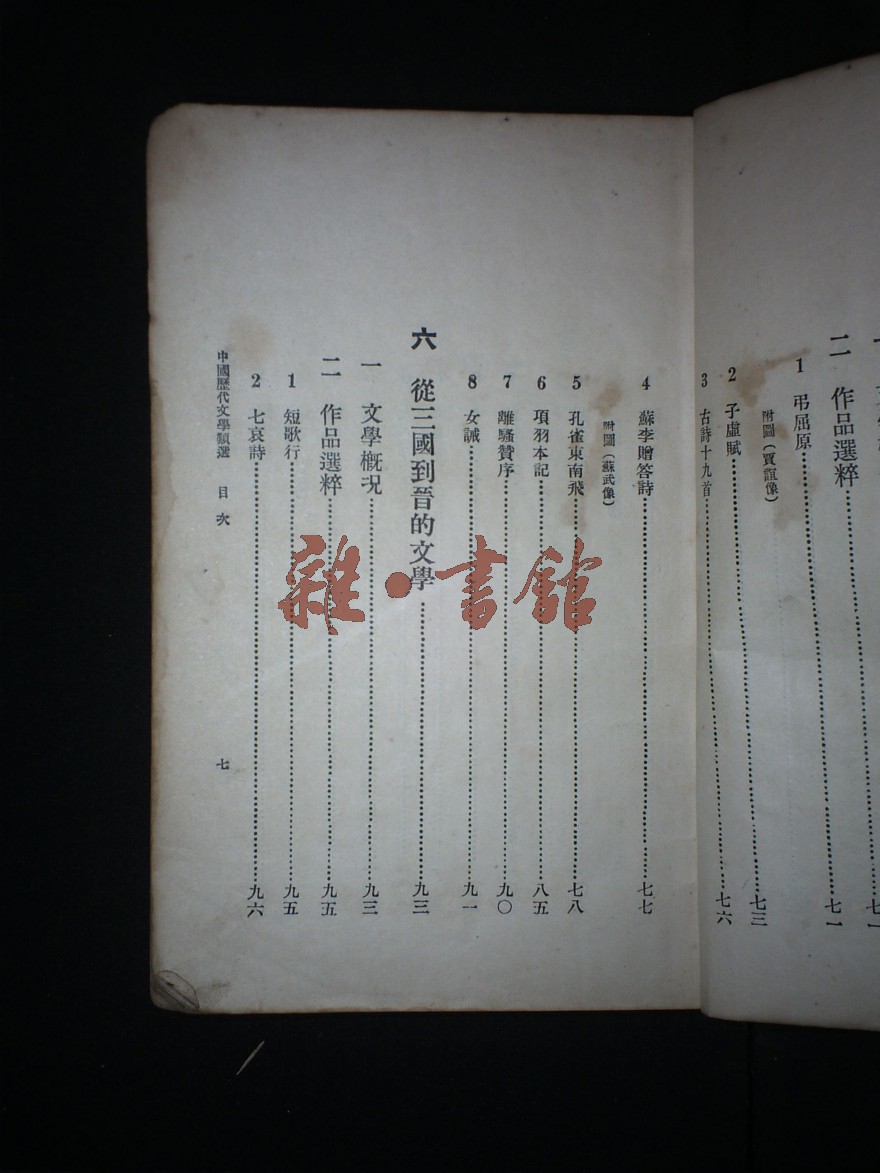 二 作品選粹……七一
1 弔屈原
附圖(賈誼像)
2 子虛賦……七三
3 古詩十九首……七六
4 蘇李贈答詩……七七
附圖(蘇武像)
5 孔雀東南飛……七八
6 項羽本記……八五
7 離騷贊序……九〇
8 女誡……九一
六 從三國到晉的文學……九三
一 文學概况……九三
二 作品選粹……九五
1 短歌行……九五
2 七哀詩……九六
中國歷代文學類選 目次 七
雜·書館